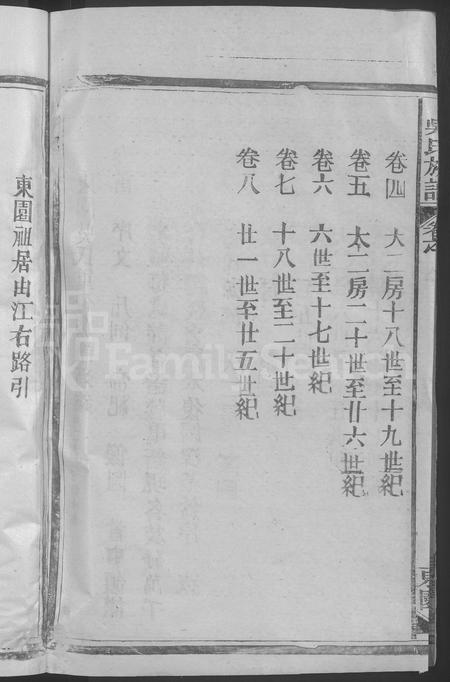 吳氏族譜
卷四 大二房十八世至十九世紀
卷五 太二房二十世至廿六世紀
卷六 六世至十七世紀
卷七 十八世至二十世紀
卷八 廿一世至廿五世紀
東園
東園祖居由江右路引
FamilySearch